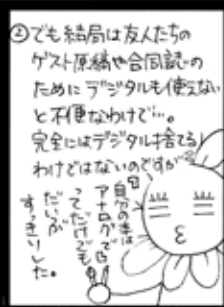 ②でも結局は友人たちの
ゲスト原稿や合同誌の
ためにデジタルも使えない
と不便なわけで…。
完全にはデジタル捨てる
わけではないのですが
自分の本は
アナログでOK
ってだけでも
だいぶが
すっきりした。